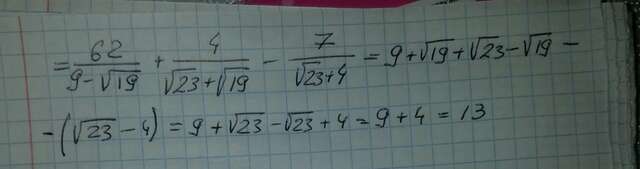 = 62/(9-√19) + 4/(√23+√19) - 7/(√23+4) = 9+√19+√23-√19 -
-(√23-4) = 9+√23-√23+4 = 9+4 = 13